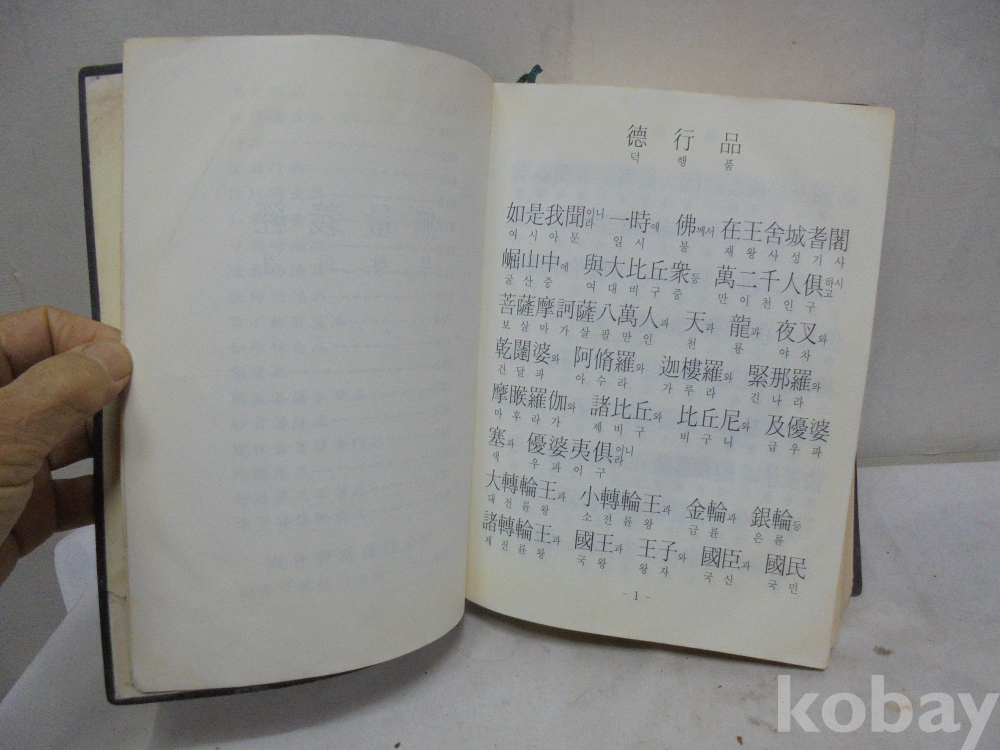 德 行 品
덕 행 품
如是我聞이니라 一時에 佛께서 在王舍城耆闍
여시아문 일시 불 재왕사성기사
崛山中에 與大比丘衆등 萬二千人俱하시고
굴산중 여대비구중 만이천인구
菩薩摩訶薩八萬人과 天과 龍과 夜叉와
보살마가살팔만인 천 룡 야차
乾闥婆와 阿脩羅와 迦樓羅와 緊那羅와
건달파 아수라 가루라 긴나라
摩睺羅伽와 諸比丘와 比丘尼와 及優婆
마후라가 제비구 비구니 급우파
塞과 優婆夷俱이니라
색 우파이구
大轉輪王과 小轉輪王과 金輪과 銀輪등
대전륜왕 소전륜왕 금륜 은륜
諸轉輪王과 國王과 王子와 國臣과 國民
제전륜왕 국왕 왕자 국신 국민
- 1 -
kobay